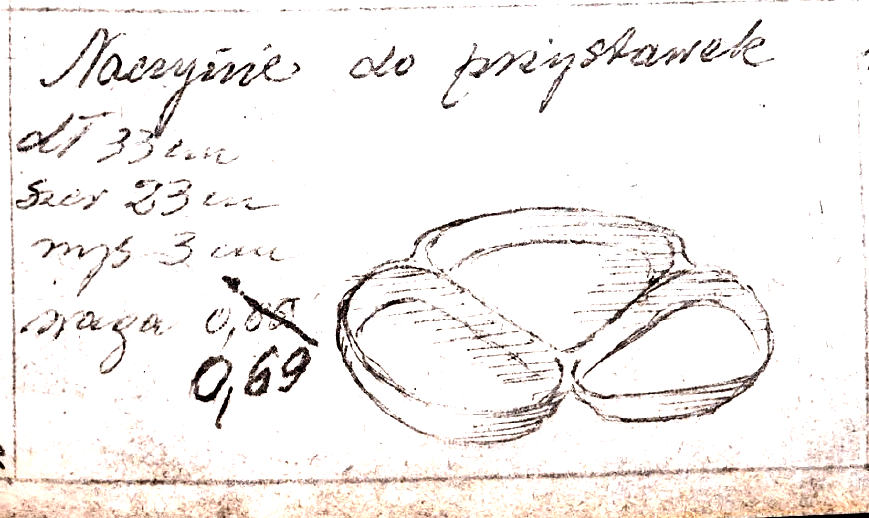 Naczynie do przystawek
dł 33 cm
szer 23 cm
wys 3 cm
waga 0,85
0,69